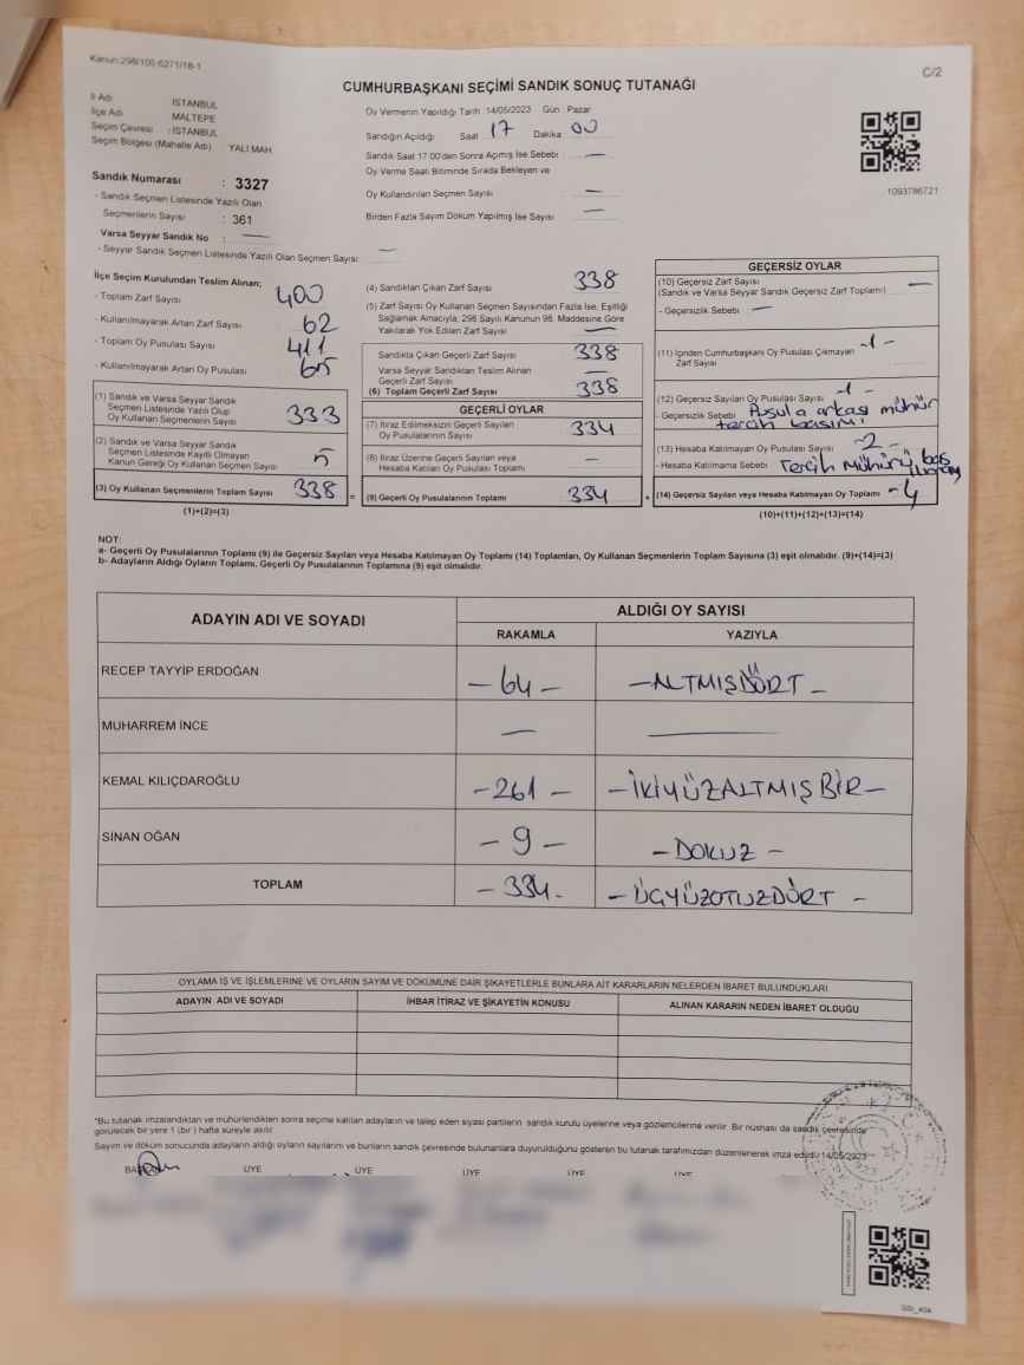 Kanun:298/105-6271/18-1
C/2
CUMHURBAŞKANI SEÇİMİ SANDIK SONUÇ TUTANAĞI
İl Adı : İSTANBUL
İlçe Adı : MALTEPE
Seçim Çevresi : İSTANBUL
Seçim Bölgesi (Mahalle Adı) YALI MAH.
Sandık Numarası : 3327
- Sandık Seçmen Listesinde Yazılı Olan
Seçmenlerin Sayısı : 361
Varsa Seyyar Sandık No : —
- Seyyar Sandık Seçmen Listesinde Yazılı Olan Seçmen Sayısı : —
Oy Vermenin Yapıldığı Tarih :14/05/2023 Gün : Pazar
Sandığın Açıldığı Saat 17 Dakika 00
Sandık Saat 17:00'den Sonra Açılmış İse Sebebi : —
Oy Verme Saati Bitiminde Sırada Bekleyen ve
Oy Kullandırılan Seçmen Sayısı —
Birden Fazla Sayım Döküm Yapılmış İse Sayısı —
1093786721
İlçe Seçim Kurulundan Teslim Alınan;
- Toplam Zarf Sayısı 400
- Kullanılmayarak Artan Zarf Sayısı 62
- Toplam Oy Pusulası Sayısı 411
- Kullanılmayarak Artan Oy Pusulası 65
(1) Sandık ve Varsa Seyyar Sandık
Seçmen Listesinde Yazılı Olup
Oy Kullanan Seçmenlerin Sayısı 333
(2) Sandık ve Varsa Seyyar Sandık
Seçmen Listesinde Kayıtlı Olmayan
Kanun Gereği Oy Kullanan Seçmen Sayısı 5
(3) Oy Kullanan Seçmenlerin Toplam Sayısı 338 =
(1)+(2)=(3)
(4) Sandıktan Çıkan Zarf Sayısı 338
(5) Zarf Sayısı Oy Kullanan Seçmen Sayısından Fazla İse, Eşitliği
Sağlamak Amacıyla; 298 Sayılı Kanunun 98. Maddesine Göre
Yakılarak Yok Edilen Zarf Sayısı —
Sandıkta Çıkan Geçerli Zarf Sayısı 338
Varsa Seyyar Sandıktan Teslim Alınan
Geçerli Zarf Sayısı —
(6) Toplam Geçerli Zarf Sayısı 338
GEÇERLİ OYLAR
(7) İtiraz Edilmeksizin Geçerli Sayılan
Oy Pusulalarının Sayısı 334
(8) İtiraz Üzerine Geçerli Sayılan veya
Hesaba Katılan Oy Pusulası Toplamı —
(9) Geçerli Oy Pusulalarının Toplamı 334 +
GEÇERSİZ OYLAR
(10) Geçersiz Zarf Sayısı
(Sandık ve Varsa Seyyar Sandık Geçersiz Zarf Toplamı) —
- Geçersizlik Sebebi —
(11) İçinden Cumhurbaşkanı Oy Pusulası Çıkmayan
Zarf Sayısı -1-
(12) Geçersiz Sayılan Oy Pusulası Sayısı -1-
- Geçersizlik Sebebi Pusula arkası mühür
tercih basımı
(13) Hesaba Katılmayan Oy Pusulası Sayısı -2-
- Hesaba Katılmama Sebebi Tercih Mühürü
(14) Geçersiz Sayılan veya Hesaba Katılmayan Oy Toplamı -4
(10)+(11)+(12)+(13)=(14)
NOT:
a- Geçerli Oy Pusulalarının Toplamı (9) ile Geçersiz Sayılan veya Hesaba Katılmayan Oy Toplamı (14) Toplamları, Oy Kullanan Seçmenlerin Toplam Sayısına (3) eşit olmalıdır. (9)+(14)=(3)
b- Adayların Aldığı Oyların Toplamı, Geçerli Oy Pusulalarının Toplamına (9) eşit olmalıdır.
ADAYIN ADI VE SOYADI
ALDIĞI OY SAYISI
RAKAMLA YAZIYLA
RECEP TAYYİP ERDOĞAN -64- -ALTMIŞDÖRT-
MUHARREM İNCE — —
KEMAL KILIÇDAROĞLU -261- -İKİYÜZALTMIŞBİR-
SİNAN OĞAN -9- -DOKUZ-
TOPLAM -334- -ÜÇYÜZOTUZDÖRT-
OYLAMA İŞ VE İŞLEMLERİNE VE OYLARIN SAYIM VE DÖKÜMÜNE DAİR ŞİKAYETLERLE BUNLARA AİT KARARLARIN NELERDEN İBARET BULUNDUKLARI
ADAYIN ADI VE SOYADI İHBAR İTİRAZ VE ŞİKAYETİN KONUSU ALINAN KARARIN NEDEN İBARET OLDUĞU
*Bu tutanak imzalandıktan ve mühürlendikten sonra seçime katılan adayların ve talep eden siyasi partilerin sandık kurulu üyelerine veya gözlemcilerine verilir. Bir nüshası da sandık çevresinde
görülecek bir yere 1 (bir) hafta süreyle asılır.
Sayım ve döküm sonucunda adayların aldığı oyların sayılarını ve bunların sandık çevresinde bulunanlara duyurulduğunu gösteren bu tutanak tarafımızdan düzenlenerek imza edildi.14/05/2023
BAŞKAN ÜYE ÜYE ÜYE ÜYE ÜYE